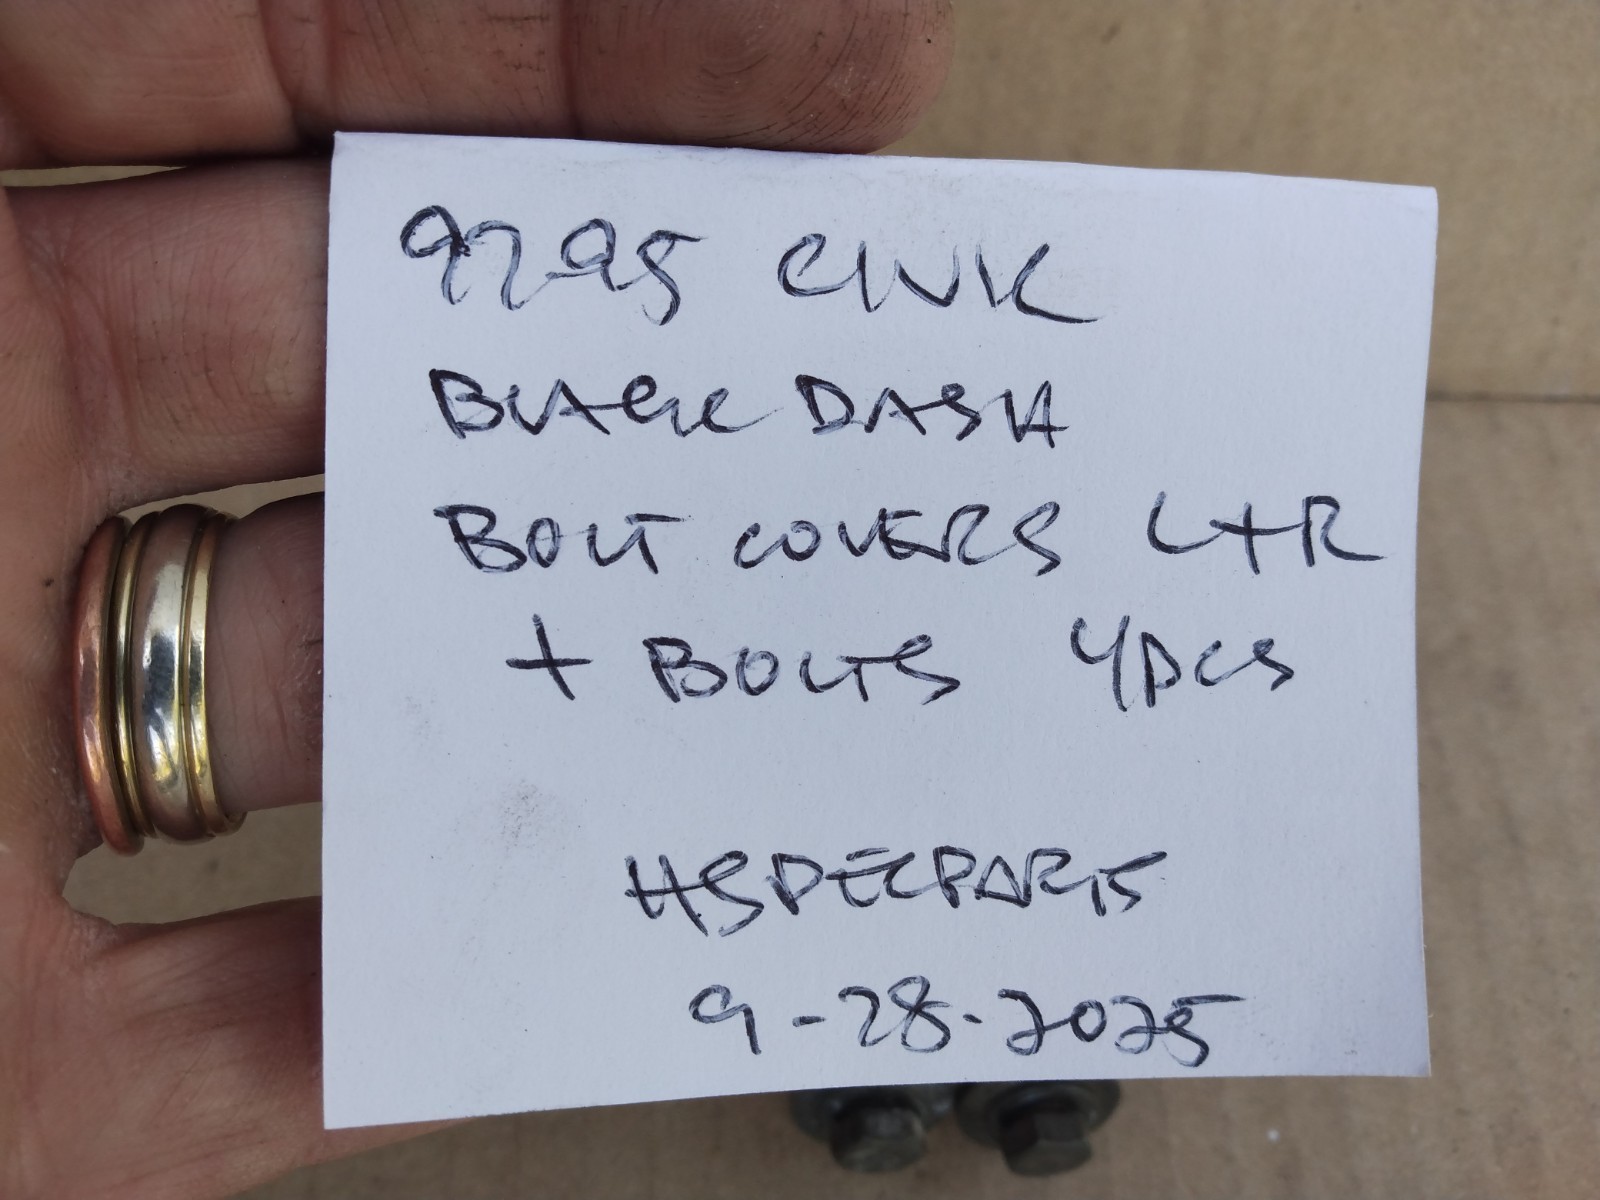 92-95 CIVIC
BLACK DASH
BOLT COVERS L+R
+ BOLTS 4PCS
HSPECPARTS
9-28-2025